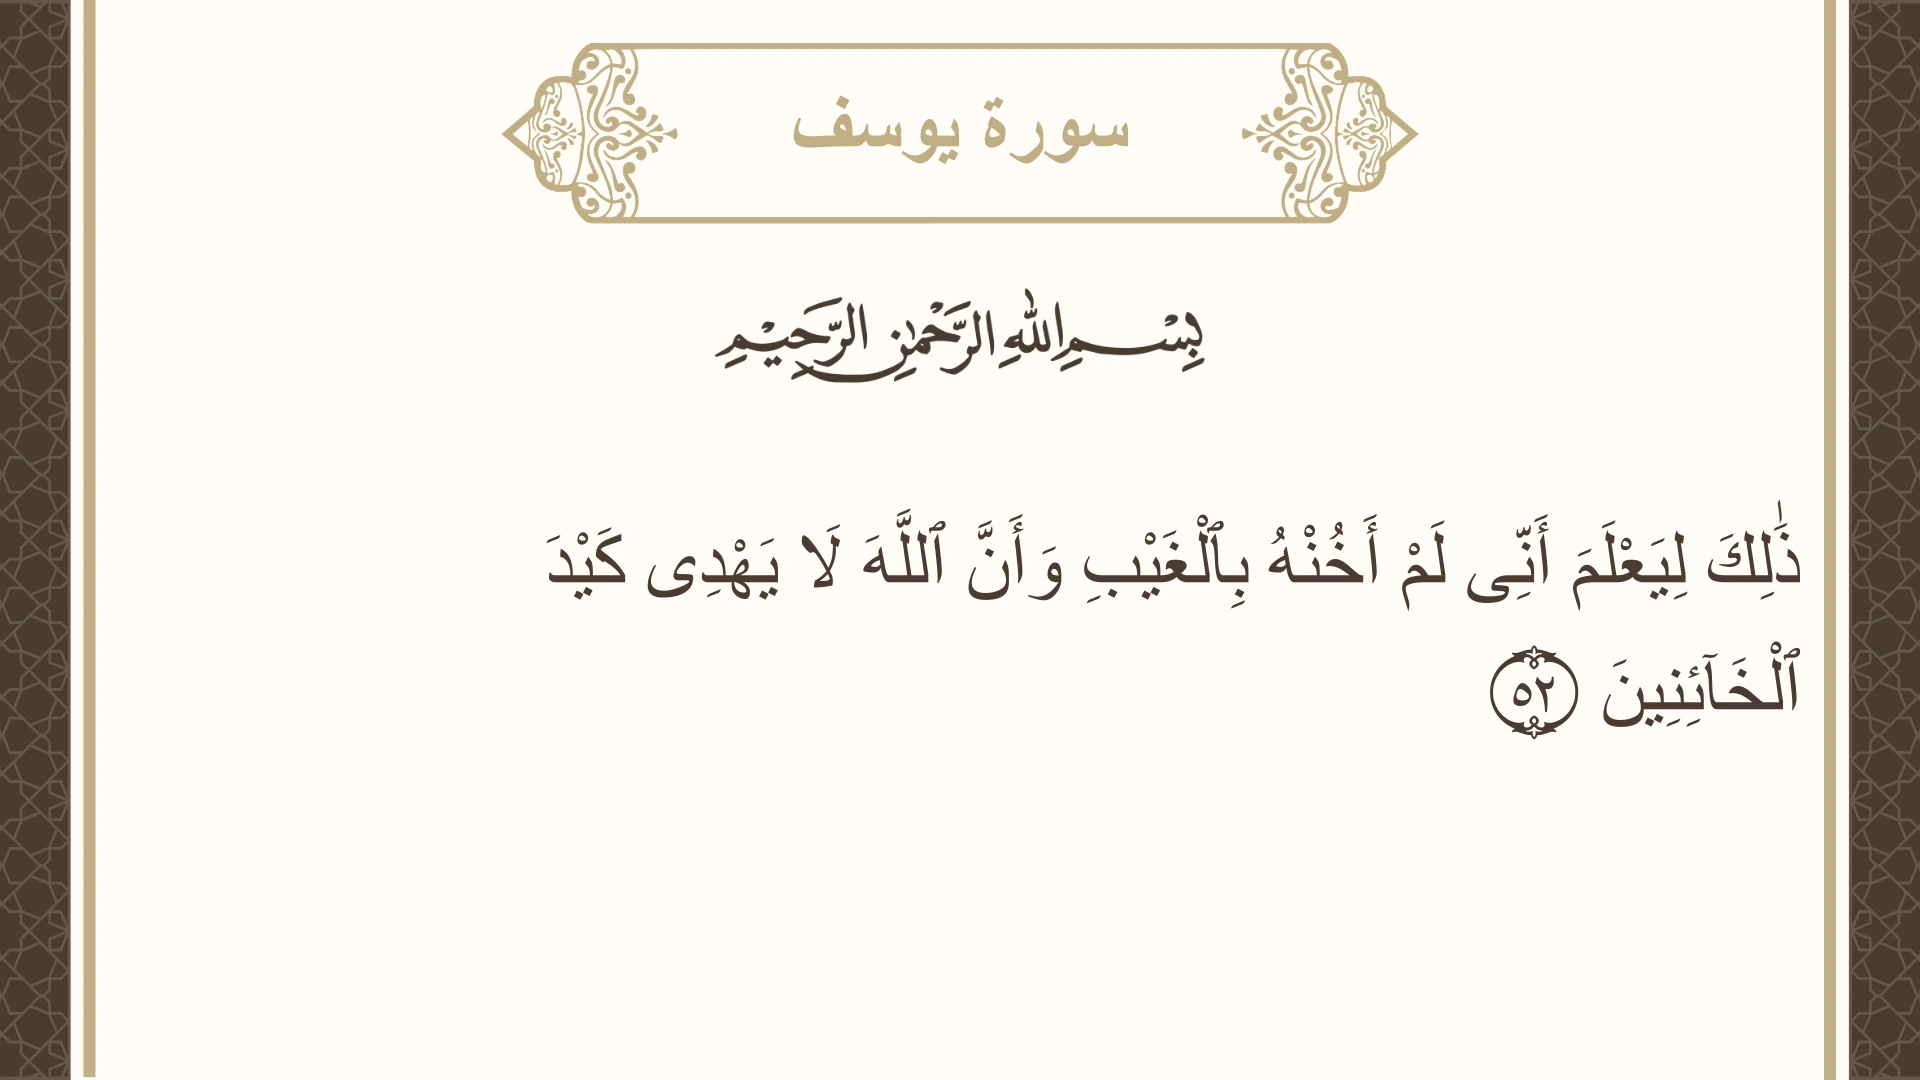 سورة يوسف
بِسْمِ اللهِ الرَّحْمٰنِ الرَّحِيْمِ
ذَٰلِكَ لِيَعْلَمَ أَنِّى لَمْ أَخُنْهُ بِٱلْغَيْبِ وَأَنَّ ٱللَّهَ لَا يَهْدِى كَيْدَ
ٱلْخَآئِنِينَ ٥٢